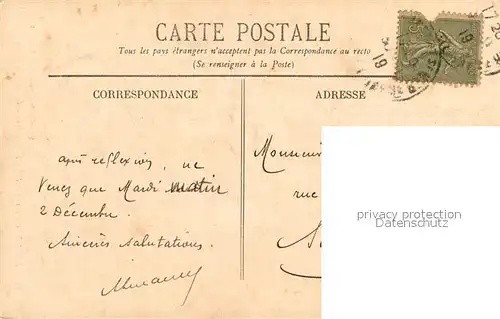 CARTE POSTALE
Tous les pays étrangers n'acceptent pas la Correspondance au recto
(Se renseigner à la Poste)
CORRESPONDANCE
ADRESSE
après reflexion, ne
Venez que Mardi matin
2 Décembre.
Sincères salutations.
Monsieur
rue
privacy protection
Datenschutz